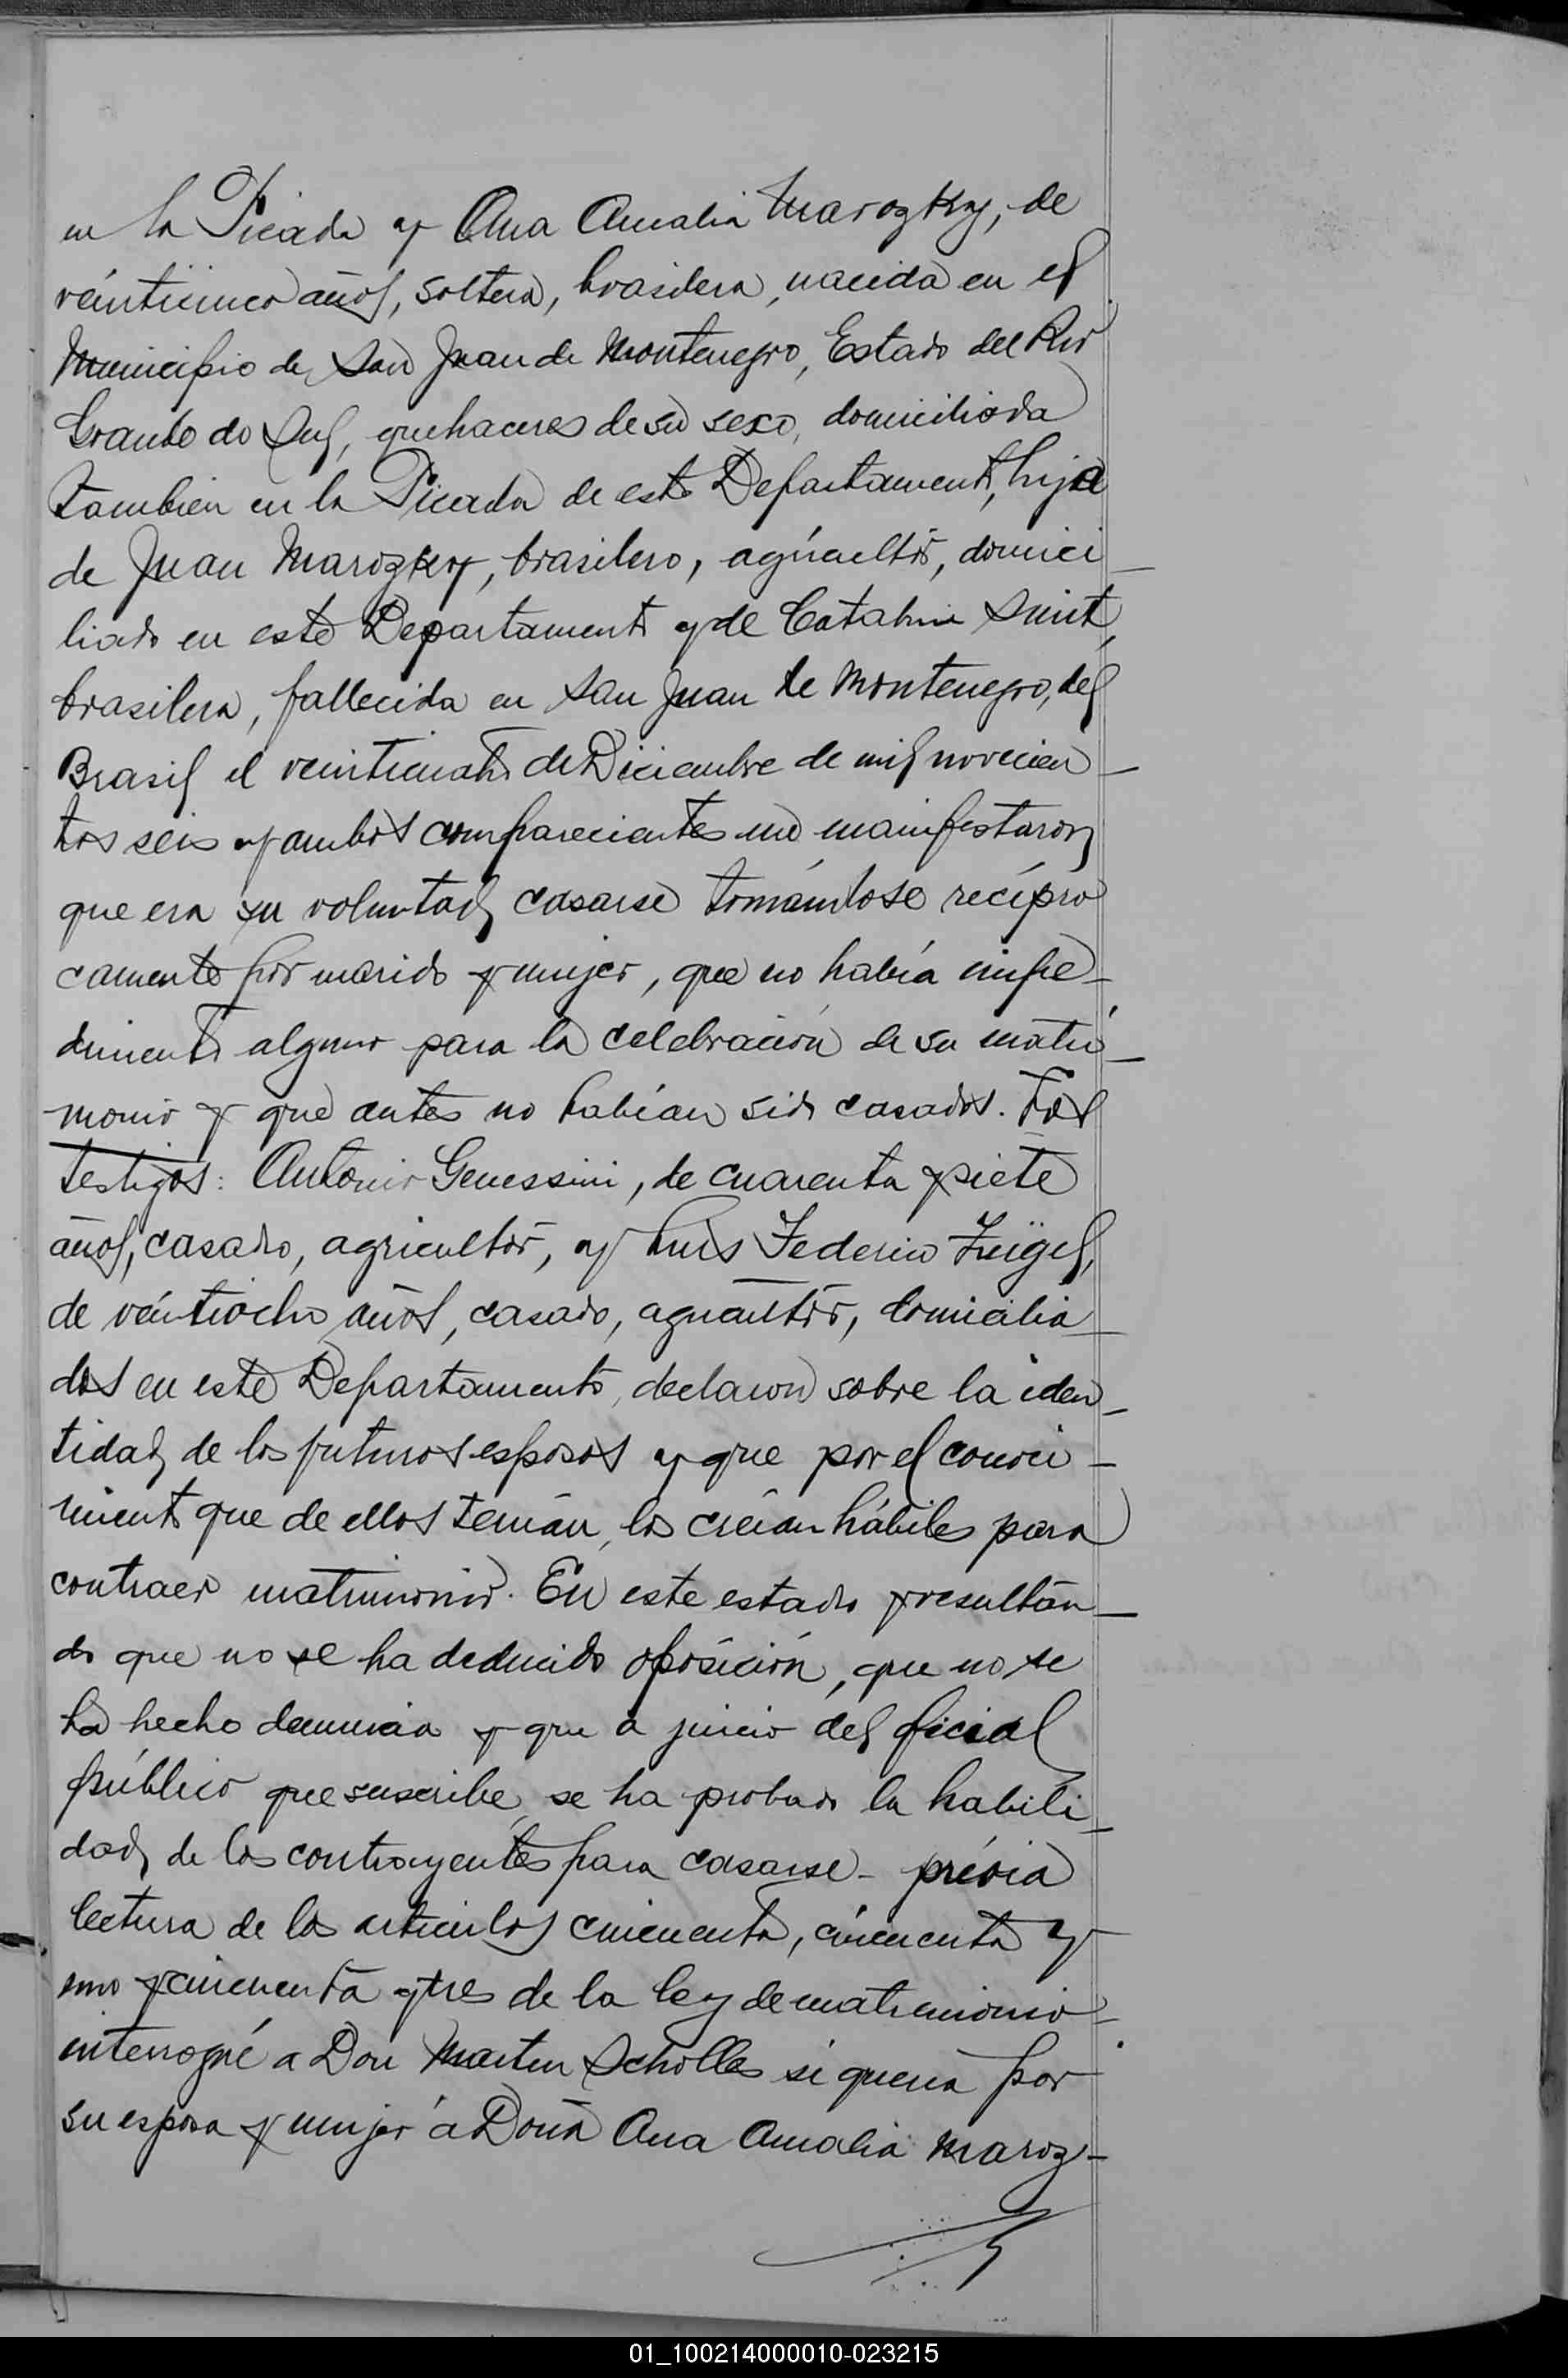 en la Picada y Ana Amalia Marozky, de
veinticinco años, soltera, brasilera, nacida en el
Municipio de San Juan de Montenegro, Estado del Rio
Grande do Sul, quehaceres de su sexo, domiciliada
tambien en la Picada de este Departamento, hija
de Juan Marozky, brasilero, agricultor, domici
liado en este Departamento y de Catalina
brasilera, fallecida en San Juan de Montenegro, del
Brasil el veinticuatro de Diciembre de mil novecien
tos seis y ambos comparecientes me manifestaron
que era su voluntad casarse tomándose recípro
camente por marido y mujer, que no había impe-
dimento alguno para la celebración de su matri
monio y que antes no habían sido casados. Los
testigos: Antonio Genessini, de cuarenta y siete
años, casado, agricultor, y Luis Federico
de veintiocho años, casado, agricultor, domicilia
dos en este Departamento, declaron sobre la iden
tidad de los futuros esposos y que por el conoci-
miento que de ellos tenían, los creían hábiles para
contraer matrimonio. En este estado y resultan
do que no se ha deducido oposición, que no se
ha hecho denuncia y que a juicio del oficial
público que suscribe, se ha probado la habili
dad de los contrayentes para casarse- prévia
lectura de los artículos cincuenta, cincuenta y
uno y cincuenta y tres de la ley de matrimonio-
interrogué a Don Martin Scholles si queria por
su esposa y mujer a Doña Ana Amalia Maroz-
01_100214000010-023215